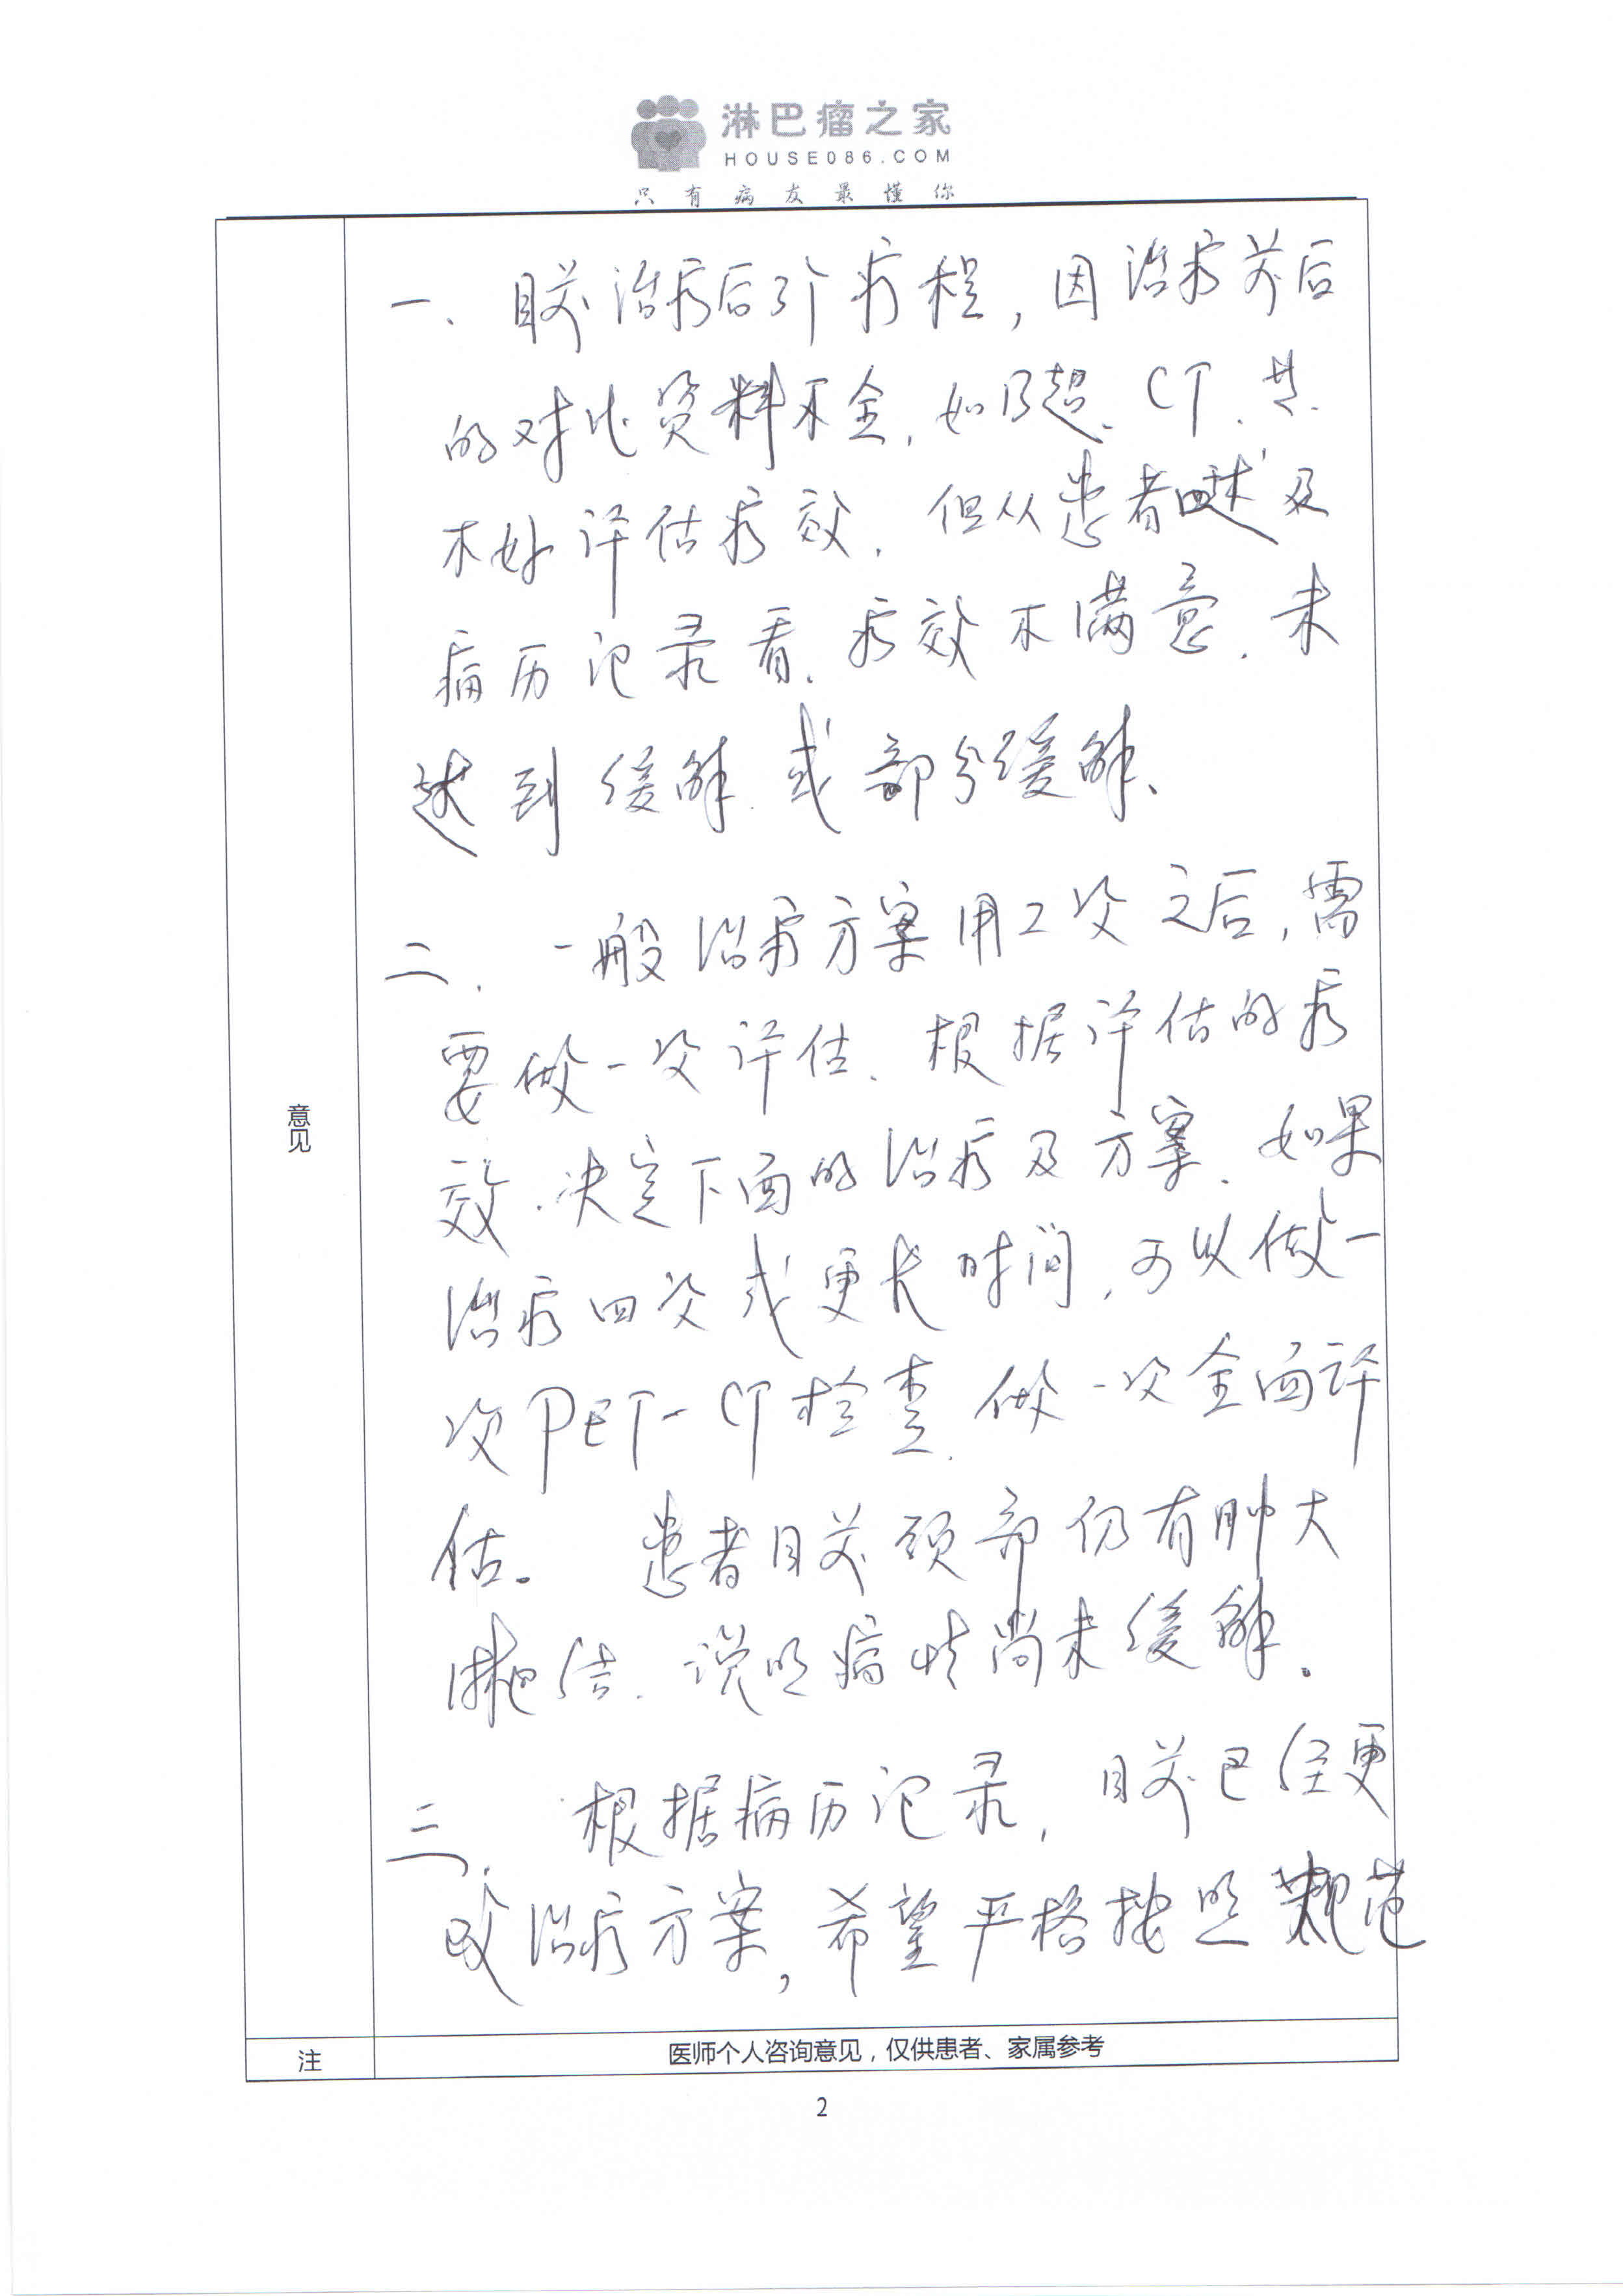 淋巴瘤之家
HOUSE086.COM
只有病友最懂你
一、目前治疗后3个疗程，因治疗前后
的对比资料不全，如B超、CT、
不好评估疗效，但从患者 及
病历记录看，疗效不满意，未
达到缓解或部分缓解、
二、一般治疗方案用2次之后，需
要做一次评估、根据评估的疗
效，决定下面的治疗及方案、如果
治疗四次或更长时间，可以做一
次PET-CT检查，做一次全面评
估。 患者目前颈部仍有肿大
淋巴结、说明病情尚未缓解。
三、根据病历记录，目前已经更
改治疗方案，希望严格按照规范
意见
注
医师个人咨询意见，仅供患者、家属参考
2